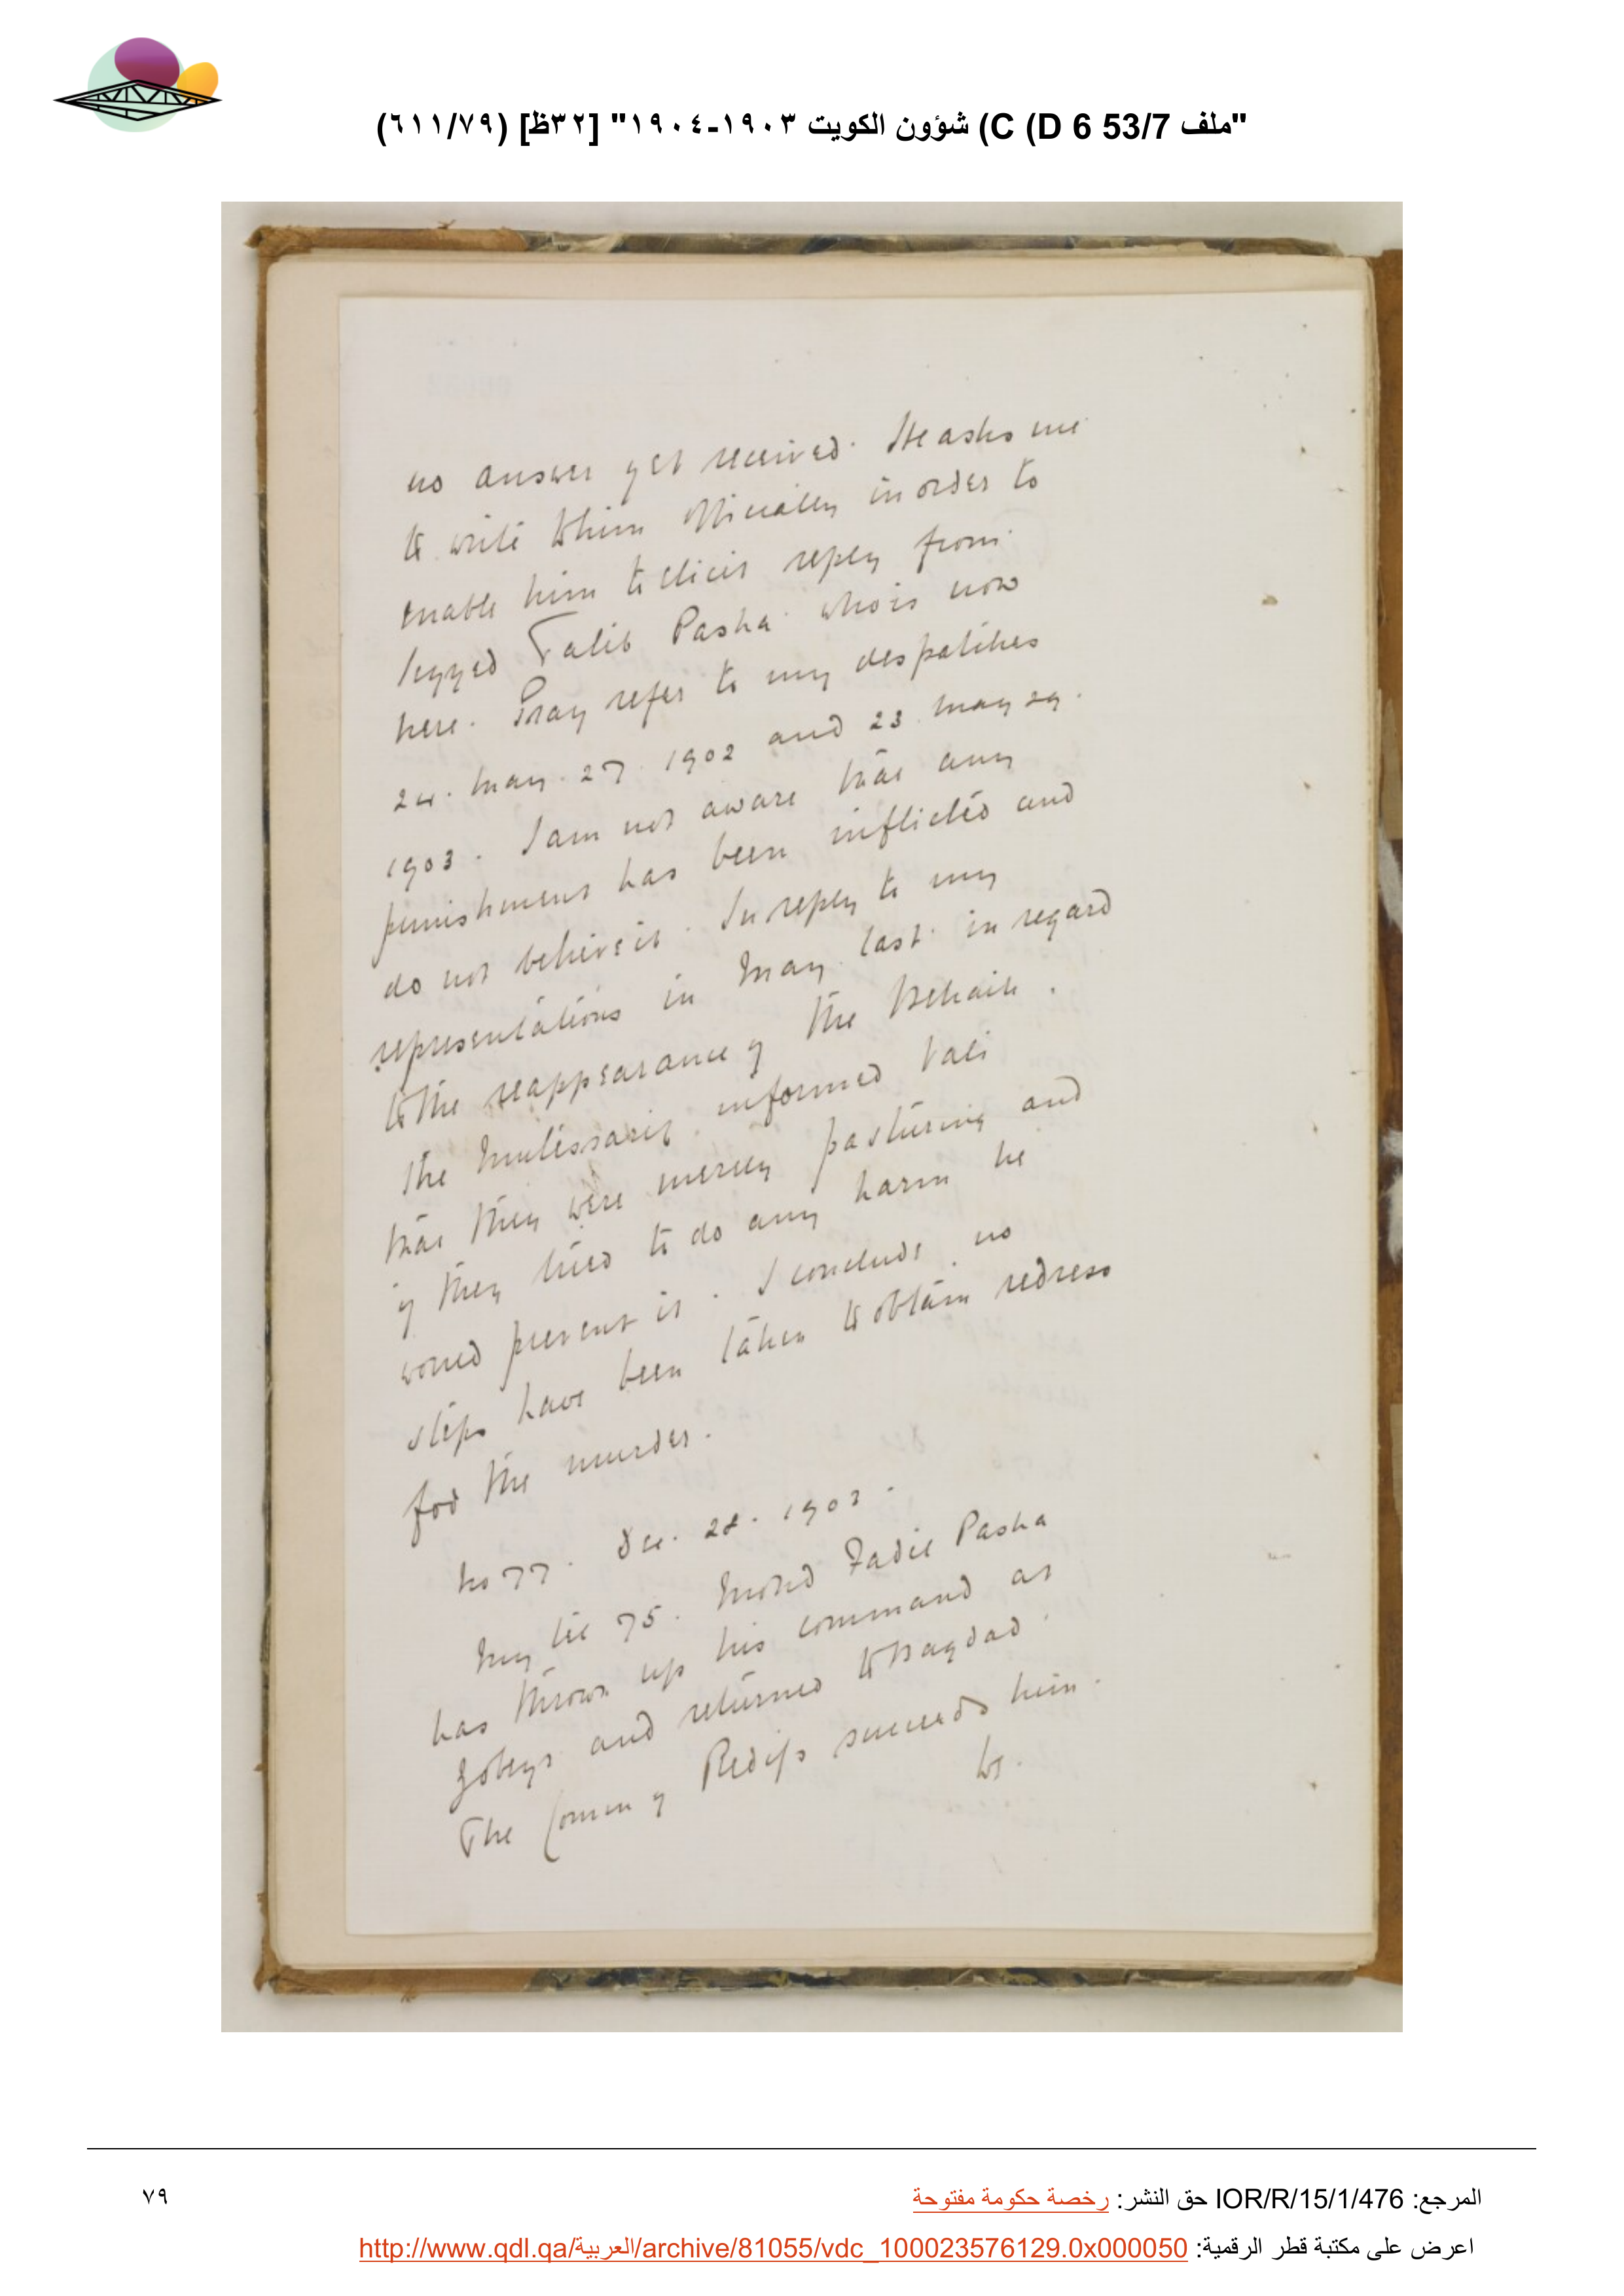 "ملف 53/7 D 6) C) شؤون الكويت ١٩٠٣-١٩٠٤" [٣٢ظ] (٦١١/٧٩)
no answer yet received. He asks me
to write to him officially in order to
enable him to elicit reply from
Seyyed Talib Pasha who is now
here. Pray refer to my despatches
24. May. 27. 1902 and 23. May 29.
1903. I am not aware that any
punishment has been inflicted and
do not believe it. In reply to my
representations in May last in regard
to the reappearance of the
the Mutessarif informed Vali
that they were merely pasturing and
if they tried to do any harm he
would prevent it. I conclude no
steps have been taken to obtain redress
for the murder.
No 77. Dec. 28. 1903.
My tel 75. Mohd Fadil Pasha
has thrown up his command at
Zobeyr and returned to Bagdad.
The Comm of Redifs succeeds him.
المرجع: IOR/R/15/1/476 حق النشر: رخصة حكومة مفتوحة
٧٩
اعرض على مكتبة قطر الرقمية: http://www.qdl.qa/العربية/archive/81055/vdc_100023576129.0x000050